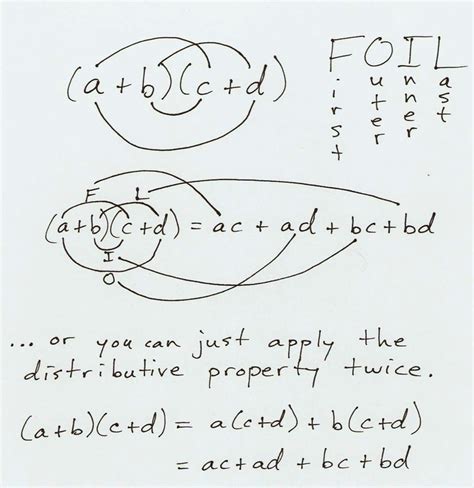 (a+b)(c+d)
FOIL
First
Outer
Inner
Last
F L
(a+b)(c+d) = ac + ad + bc + bd
I
O
... or you can just apply the
distributive property twice.
(a+b)(c+d) = a(c+d) + b(c+d)
= ac + ad + bc + bd